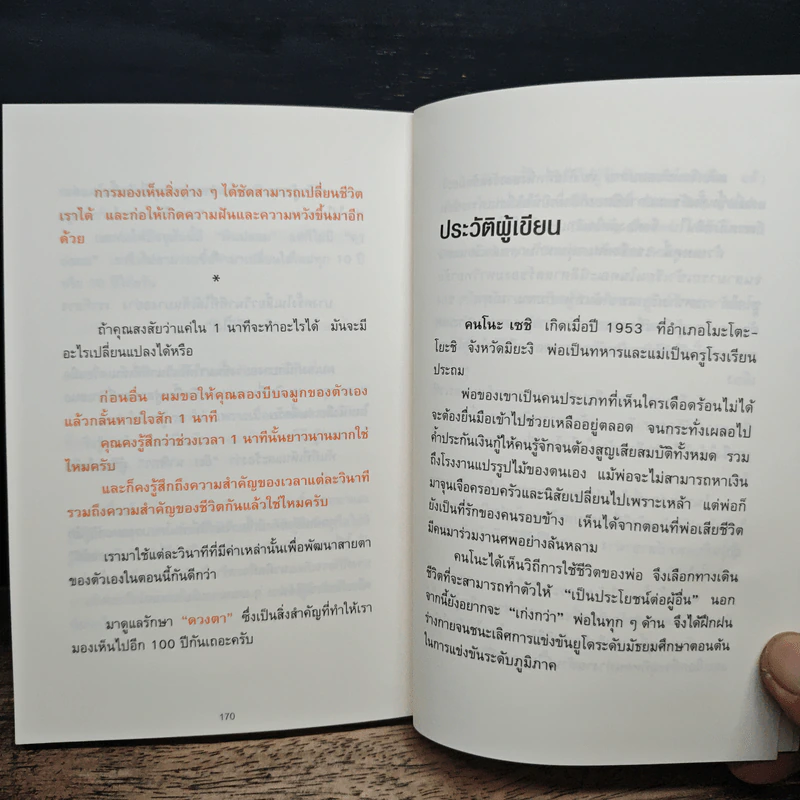 การมองเห็นสิ่งต่าง ๆ ได้ชัดสามารถเปลี่ยนชีวิต
เราได้ และก่อให้เกิดความฝันและความหวังขึ้นมาอีก
ด้วย
*
ถ้าคุณสงสัยว่าแค่ใน 1 นาทีจะทำอะไรได้ มันจะมี
อะไรเปลี่ยนแปลงได้หรือ
ก่อนอื่น ผมขอให้คุณลองบีบจมูกของตัวเอง
แล้วกลั้นหายใจสัก 1 นาที
คุณคงรู้สึกว่าช่วงเวลา 1 นาทีนั้นยาวนานมากใช่
ไหมครับ
และก็คงรู้สึกถึงความสำคัญของเวลาแต่ละวินาที
รวมถึงความสำคัญของชีวิตกันแล้วใช่ไหมครับ
เรามาใช้แต่ละวินาทีที่มีค่าเหล่านั้นเพื่อพัฒนาสายตา
ของตัวเองในตอนนี้กันดีกว่า
มาดูแลรักษา "ดวงตา" ซึ่งเป็นสิ่งสำคัญที่ทำให้เรา
มองเห็นไปอีก 100 ปีกันเถอะครับ
170
ประวัติผู้เขียน
คนโนะ เซชิ เกิดเมื่อปี 1953 ที่อำเภอโมะโตะ-
โยะชิ จังหวัดมิยะงิ พ่อเป็นทหารและแม่เป็นครูโรงเรียน
ประถม
พ่อของเขาเป็นคนประเภทที่เห็นใครเดือดร้อนไม่ได้
จะต้องยื่นมือเข้าไปช่วยเหลืออยู่ตลอด จนกระทั่งเผลอไป
ค้ำประกันเงินกู้ให้คนรู้จักจนต้องสูญเสียสมบัติทั้งหมด รวม
ถึงโรงงานแปรรูปไม้ของตนเอง แม้พ่อจะไม่สามารถหาเงิน
มาจุนเจือครอบครัวและนิสัยเปลี่ยนไปเพราะเหล้า แต่พ่อก็
ยังเป็นที่รักของคนรอบข้าง เห็นได้จากตอนที่พ่อเสียชีวิต
มีคนมาร่วมงานศพอย่างล้นหลาม
คนโนะได้เห็นวิถีการใช้ชีวิตของพ่อ จึงเลือกทางเดิน
ชีวิตที่จะสามารถทำตัวให้ "เป็นประโยชน์ต่อผู้อื่น" นอก
จากนี้ยังอยากจะ "เก่งกว่า" พ่อในทุก ๆ ด้าน จึงได้ฝึกฝน
ร่างกายจนชนะเลิศการแข่งขันยูโดระดับมัธยมศึกษาตอนต้น
ในการแข่งขันระดับภูมิภาค